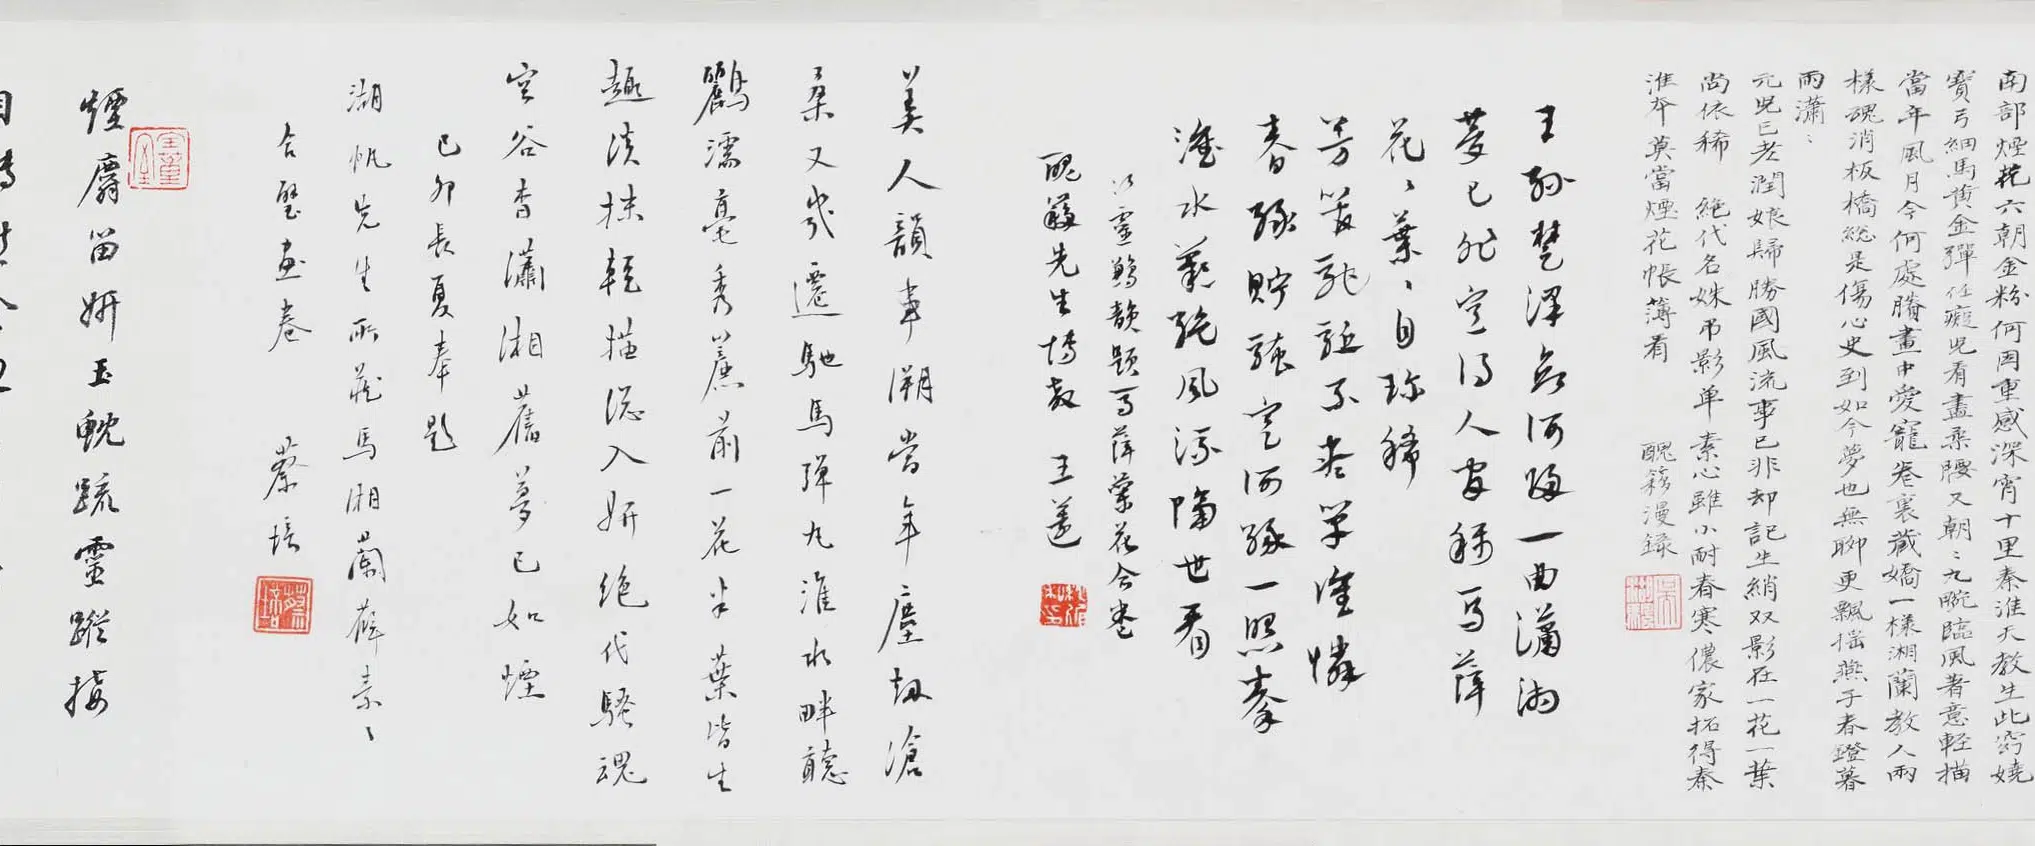 南部煙花六朝金粉何因重感深宵十里秦淮天教生此窈嬈
寶弓細馬黃金彈任癡兒看盡柔腰又朝〻九畹臨風著意輕描
當年風月今何處賸畫中愛寵卷裏藏嬌一樣湘蘭教人兩
樣魂消板橋總是傷心史到如今夢也無聊更飄搖燕子春鐙暮
雨瀟〻
元兒已老潤娘歸勝國風流事已非却記生綃双影在一花一葉
尚依稀 絕代名姝弔影单素心雖小耐春寒儂家拓得秦
淮本莫當煙花帳薄看 醜簃漫錄
王孫楚澤無何歸一曲瀟湘
夢已非空得人間稱馬薛
花〻葉〻自珍稀
芳馨翫不孝單誰憐
春貯空何緣一照秦
淮水蕭絕風流隔世看
題馬薛蘭花合卷
醜簃先生博教 王蘧
美人韻事溯當年塵劫滄
桑又幾遷馳馬彈丸淮水畔聽
鸝濡毫秀簾前一花半葉皆生
趣淡抹輕描總入妍絕代騷魂
空谷杳瀟湘舊夢已如煙
己卯長夏奉題
湖帆先生所藏馬湘蘭薛素〻
合璧畫卷 蔡培
煙麝留妍玉軏疏靈蹤接